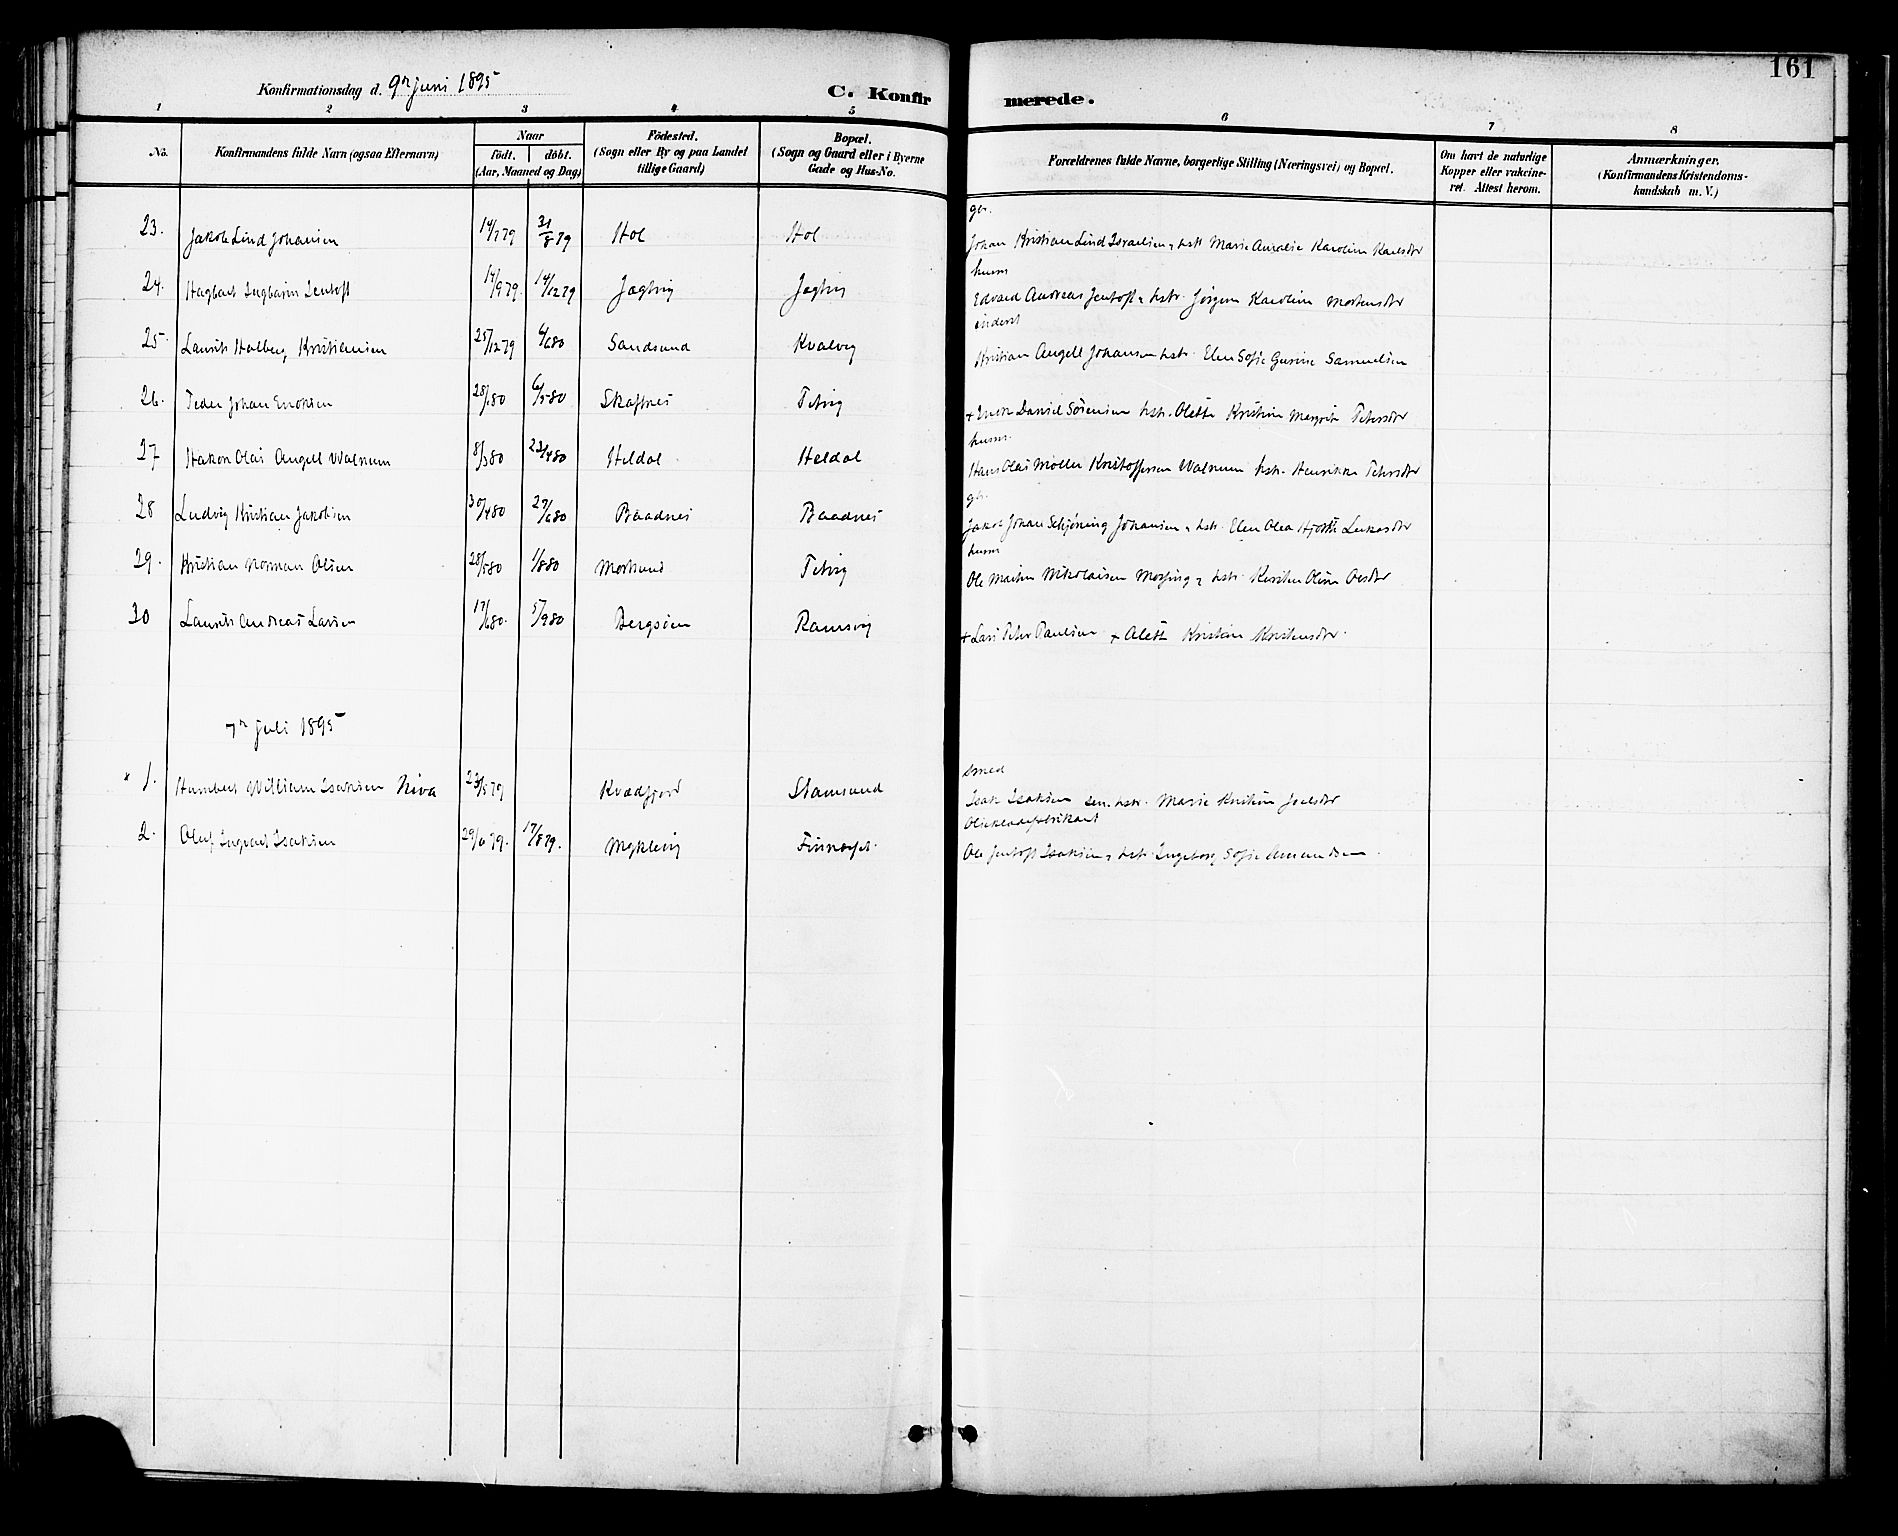 161
Konfirmationsdag d. 9n juni 1895
C. Konfirmerede.
1 2 3 4 5 6 7 8
No.
Konfirmandens fulde Navn (ogsaa Efternavn)
Naar
født. døbt.
(Aar, Maaned og Dag)
Fødested.
(Sogn eller By og paa Landet
tillige Gaard)
Bopæl.
(Sogn og Gaard eller i Byerne
Gade og Hus-No.
Forældrenes fulde Navne, borgerlige Stilling (Næringsvei) og Bopæl.
Om havt de naturlige
Kopper eller vakcine-
ret. Attest herom.
Anmærkninger.
(Konfirmandens Kristendoms-
kundskab m. V.)
gbr.
23. Jakob Lind Johansen 14/779 31/879 Hol Hol Johan Kristian Lind Israelsen, hstr Marie Amalie Karoline Karlsdtr
husm
24. Hagbart Ingbarm Jentoft 14/979. 14/1279 Jægtvig Jægtvig Edvard Andreas Jentoft, hstr. Jørgine Karoline Mortensdtr
inderst
25. Laurits Holberg Kristiansen 25/1279 Sandsund Kvalvig Kristian Angell Johansen hstr. Elen Sofie Gurine Samuelsen
26. Peder Johan Enoksen 28/180 6/580 Skaftnes Petvig + Enok Daniel Sørensen hstr. Olette Kristine Margrete Petersdtr
husm.
27 Hakon Olai Angell Walnum 8/380 23/480 Heldal Heldal Hans Olai Møller Kristoffersen Walnum hstr. Henrikke Petersdtr
gbr.
28 Ludvig Kristian Jakobsen 30/480 27/680 Baadnes Baadnes Jakob Johan Schjøning Johansen, hstr. Elen Olea Hjorth Lukasdtr
husm
29. Kristian Norman Olsen 28/580 1/880 Mortsund Petvig Ole Martin Nikolaisen Morfing, hstr. Kirsten Oline Olesdtr
30 Laurits Andreas Larsen 17/680. 5/980 Bergsøen Ramsvig + Lars Peter Paulsen + Olette Kristine Kristensdtr.
7n juli 1895
smed
x 1. Humbert William Isaksen Niva 23/579 Kvædfjord Stamsund Isak Isaksen sen. hstr. Marie Kristine Joelsdtr
Olieklædefabrikant
2. Oluf Ingvart Isaksen 29/679. 17/879. Myklevig Finnesset. Ole Jentoft Isaksen, hstr. Ingeborg Sofie Amundsen.